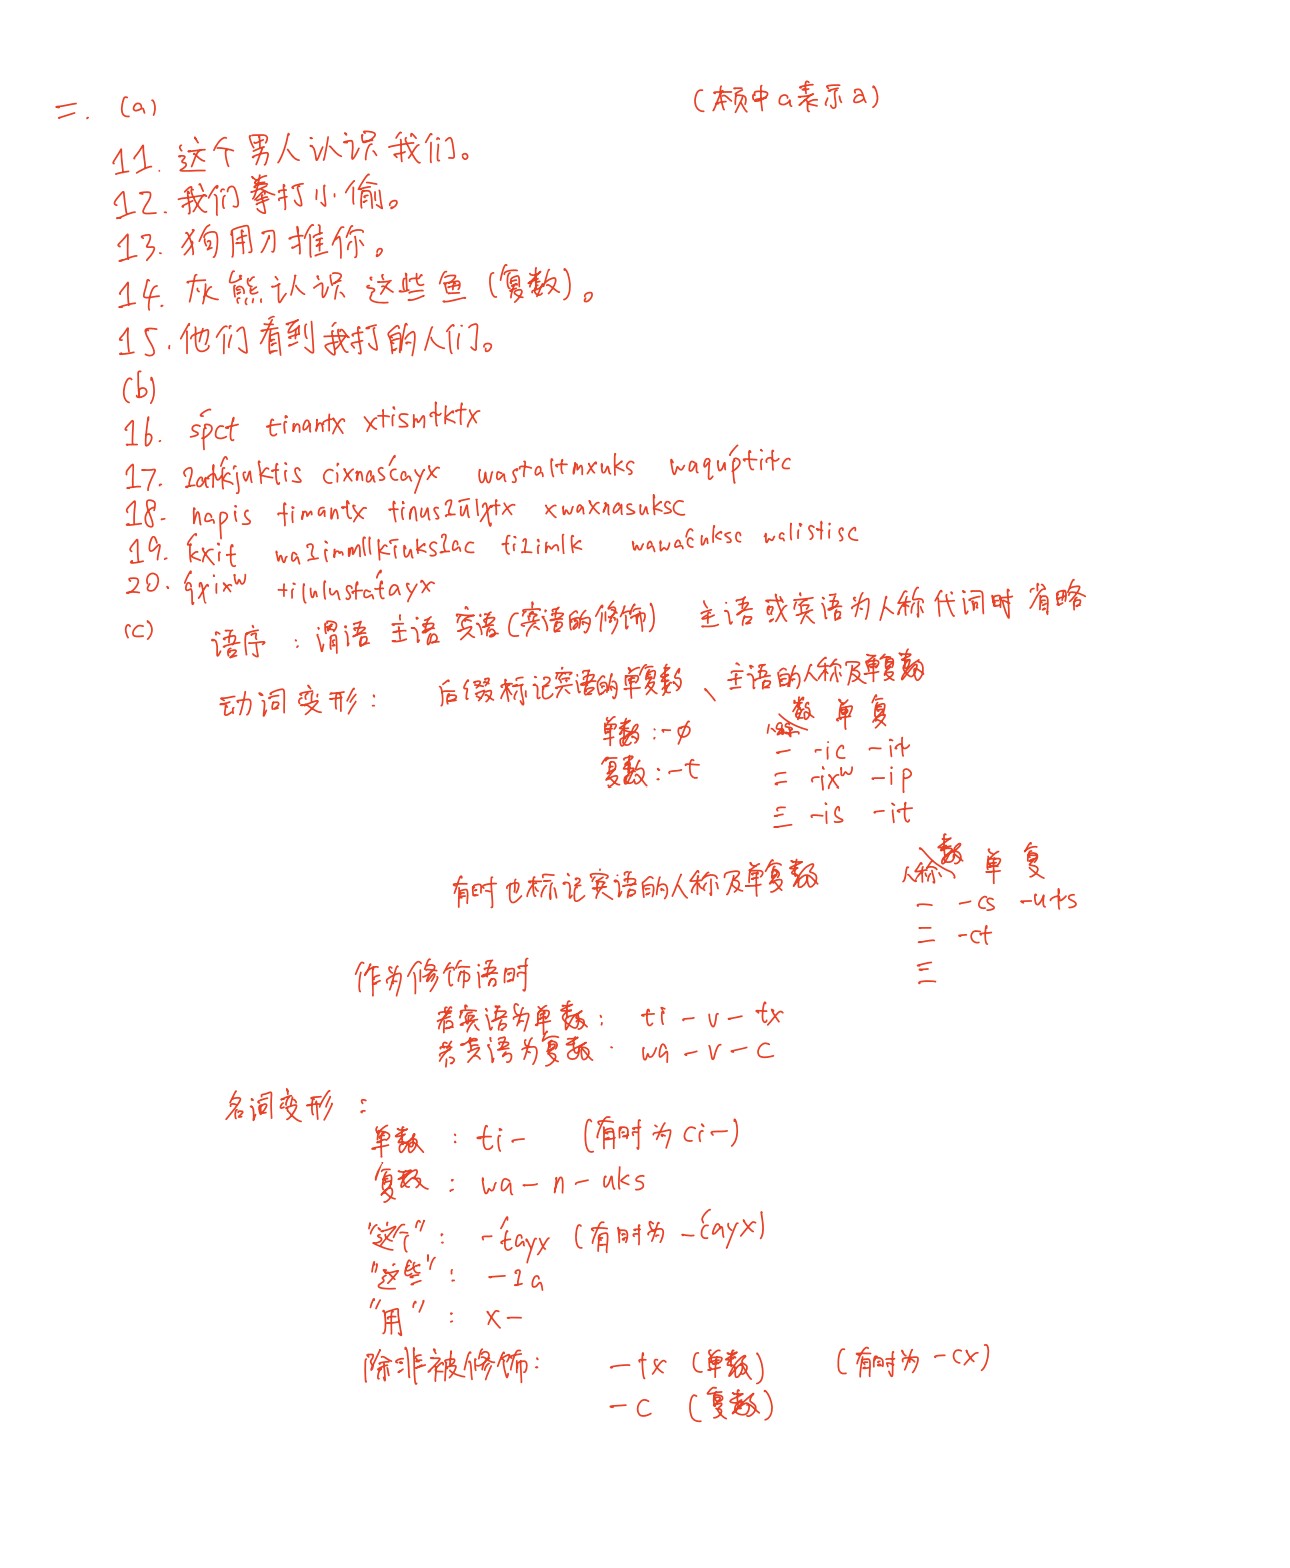 二. (a) (本页中a表示a)
11. 这个男人认识我们。
12. 我们拳打小偷。
13. 狗用刀推你。
14. 灰熊认识这些鱼(复数)。
15. 他们看到我打的人们。
(b)
16. śpct tinantx xtismtktx
17. cixnasćayx wastaltmxuks waqúptitc
18. napis timantx tinus2ūlχtx xwaxnasuksc
19. kxit ti2imlk walistisc
20. tilulustat́ayx
(c) 语序：谓语 主语 宾语(宾语的修饰) 主语或宾语为人称代词时省略
动词变形： 后缀标记宾语的单复数、主语的人称及单复数
单数：-ø 人称 数 单 复
复数：-t 一 -ic -it
二 -ixʷ -ip
三 -is -it
有时也标记宾语的人称及单复数 人称 数 单 复
一 -cs -uts
二 -ct
三
作为修饰语时
若宾语为单数： ti-v-tx
若宾语为复数： wa-v-c
名词变形：
单数：ti- (有时为ci-)
复数：wa-n-uks
"这个"：-t́ayx (有时为-ćayx)
"这些"：-2a
"用"：x-
除非被修饰： -tx (单数) (有时为-cx)
-c (复数)